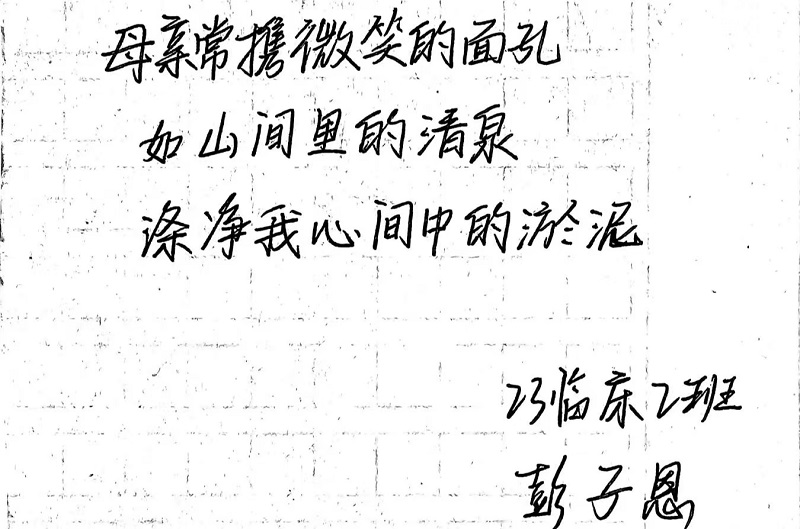 母亲常携微笑的面孔
如山间里的清泉
涤净我心间中的淤泥
23临床2班
彭子恩